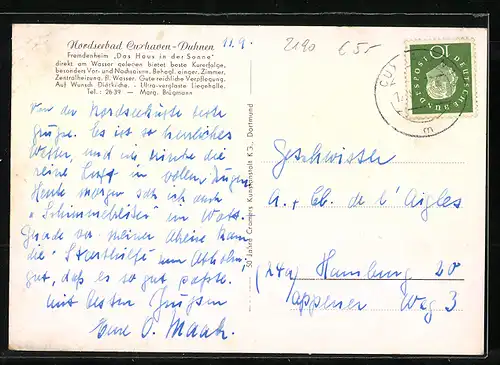 Nordseebad Cuxhaven-Duhnen
Fremdenheim „Das Haus in der Sonne"
direkt am Wasser gelegen bietet beste Kurerfolge,
besonders Vor- und Nachsaison. Behagl. einger. Zimmer,
Zentralheizung, fl. Wasser. Gute reichliche Verpflegung.
Auf Wunsch Diätküche. - Ultra-verglaste Liegehalle.
Tel.: 2639 — Marg. Brügmann
11.9.
2190
€ 5,-
Von der Nordseeküste beste
Grüße. Es ist so herrliches
Wetter, und ich
reine Luft in vollen Zügen.
Heute morgen sah ich auch
im Watt.
Grade vor meiner Abreise kam
die
gut, daß es so gut paßte.
Mit besten Grüßen
Eure O. Maack.
50 Jahre Cramers Kunstanstalt KG., Dortmund
DEUTSCHE BUNDESPOST
10
CUX
m
Geschwister
A. + Cb. de l'Aigles
(24a) Hamburg 20
Appener Weg 3